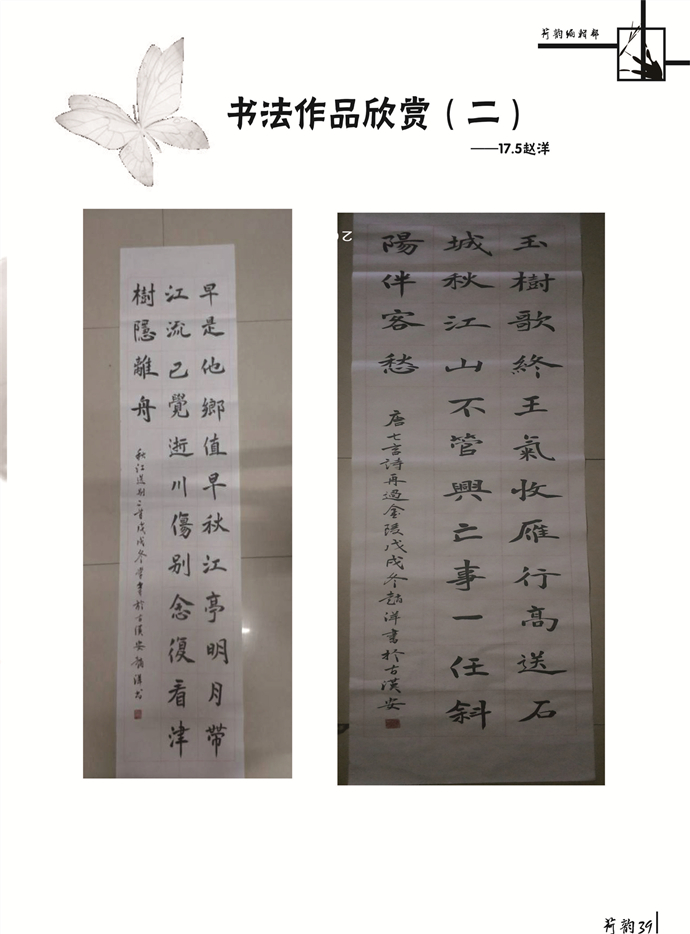 荷韵编辑部
书法作品欣赏（二）
——17.5赵洋
早是他鄉值早秋江亭明月帶
江流已覺逝川傷别念復看津
樹隱離舟
玉樹歌終王氣收雁行高送石
城秋江山不管興亡事一任斜
陽伴客愁
唐七言詩再過金陵戊戌冬趙洋書於古漢安
荷韵39